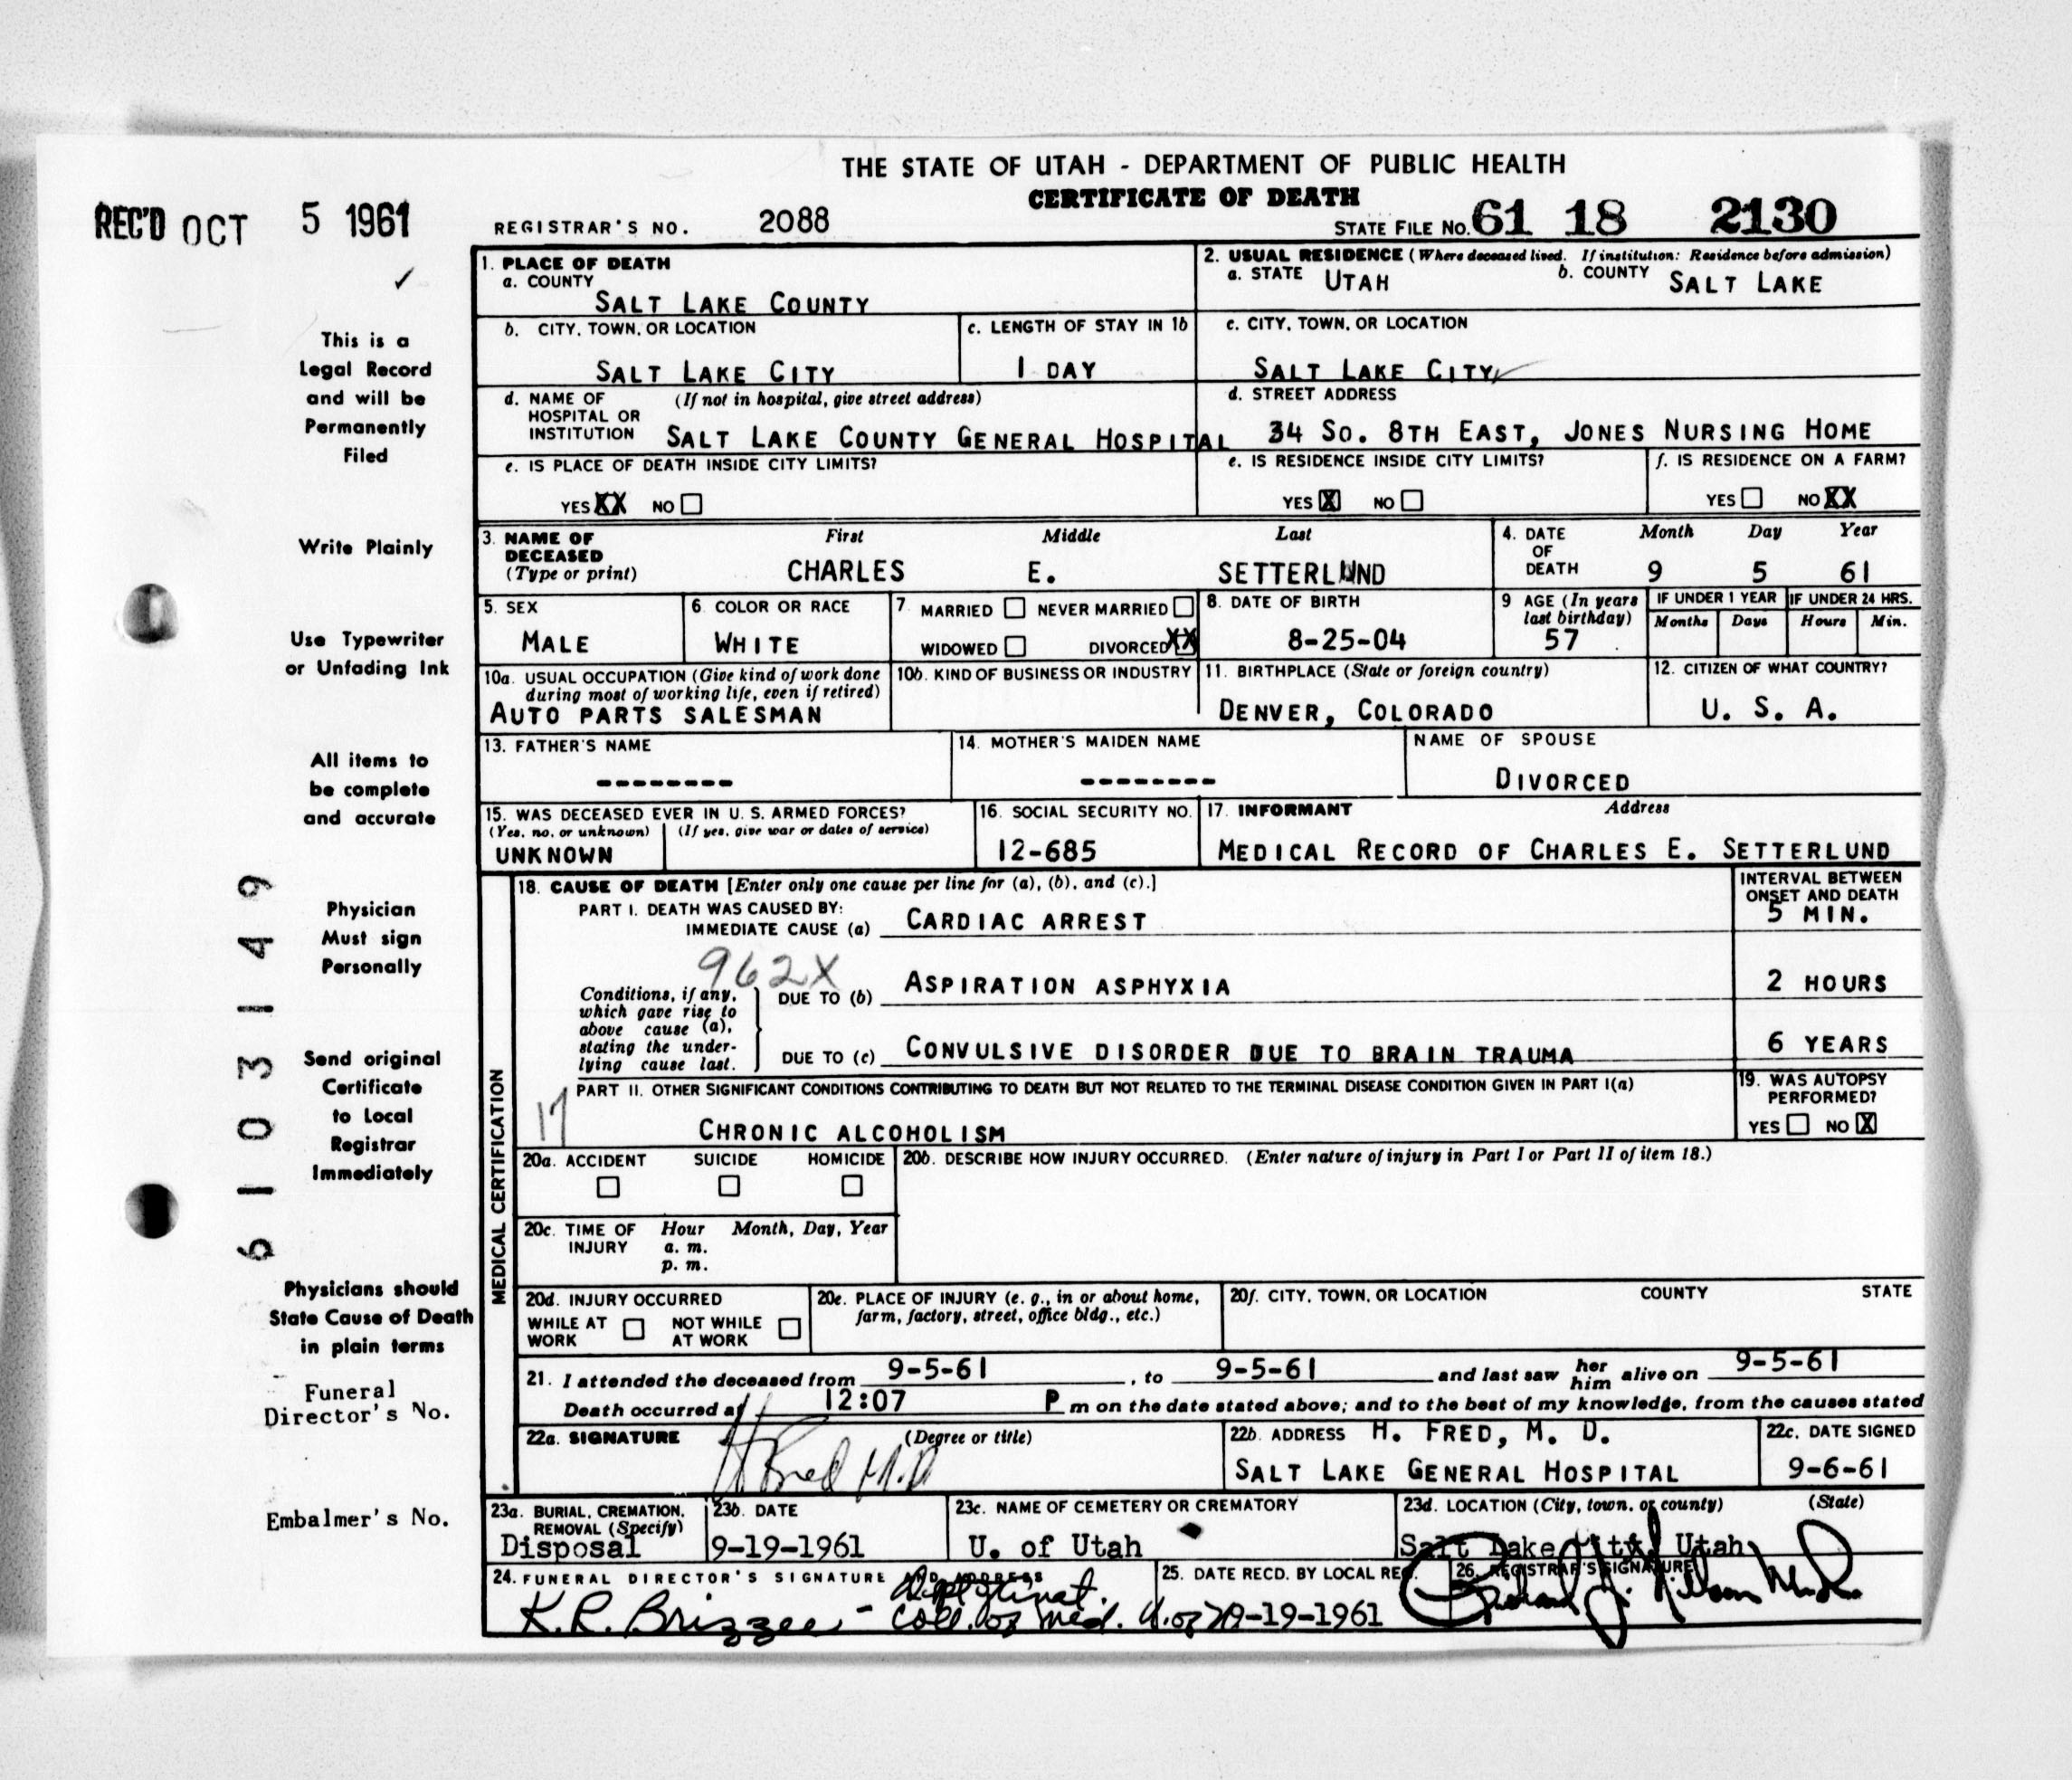 THE STATE OF UTAH - DEPARTMENT OF PUBLIC HEALTH
CERTIFICATE OF DEATH
REC'D OCT 5 1961
REGISTRAR'S NO. 2088
STATE FILE NO. 61 18 2130
✓
This is a
Legal Record
and will be
Permanently
Filed
Write Plainly
Use Typewriter
or Unfading Ink
All items to
be complete
and accurate
Physician
Must sign
Personally
Send original
Certificate
to Local
Registrar
Immediately
Physicians should
State Cause of Death
in plain terms
Funeral
Director's No.
Embalmer's No.
61103149
1. PLACE OF DEATH
a. COUNTY
SALT LAKE COUNTY
2. USUAL RESIDENCE (Where deceased lived. If institution: Residence before admission)
a. STATE UTAH b. COUNTY SALT LAKE
b. CITY, TOWN, OR LOCATION
SALT LAKE CITY
c. LENGTH OF STAY IN 1b
1 DAY
c. CITY, TOWN, OR LOCATION
SALT LAKE CITY
d. NAME OF (If not in hospital, give street address)
HOSPITAL OR
INSTITUTION SALT LAKE COUNTY GENERAL HOSPITAL
d. STREET ADDRESS
34 SO. 8TH EAST, JONES NURSING HOME
e. IS PLACE OF DEATH INSIDE CITY LIMITS?
YES XX NO
e. IS RESIDENCE INSIDE CITY LIMITS?
YES X NO
f. IS RESIDENCE ON A FARM?
YES NO XX
3. NAME OF First Middle Last
DECEASED
(Type or print) CHARLES E. SETTERLUND
4. DATE Month Day Year
OF
DEATH 9 5 61
5. SEX
MALE
6. COLOR OR RACE
WHITE
7. MARRIED NEVER MARRIED
WIDOWED DIVORCED XX
8. DATE OF BIRTH
8-25-04
9 AGE (In years
last birthday)
57
IF UNDER 1 YEAR
Months Days
IF UNDER 24 HRS.
Hours Min.
10a. USUAL OCCUPATION (Give kind of work done
during most of working life, even if retired)
AUTO PARTS SALESMAN
10b. KIND OF BUSINESS OR INDUSTRY
11. BIRTHPLACE (State or foreign country)
DENVER, COLORADO
12. CITIZEN OF WHAT COUNTRY?
U. S. A.
13. FATHER'S NAME
--------
14. MOTHER'S MAIDEN NAME
--------
NAME OF SPOUSE
DIVORCED
15. WAS DECEASED EVER IN U. S. ARMED FORCES?
(Yes, no, or unknown) (If yes, give war or dates of service)
UNKNOWN
16. SOCIAL SECURITY NO.
12-685
17. INFORMANT Address
MEDICAL RECORD OF CHARLES E. SETTERLUND
MEDICAL CERTIFICATION
18. CAUSE OF DEATH [Enter only one cause per line for (a), (b), and (c).]
INTERVAL BETWEEN
ONSET AND DEATH
PART I. DEATH WAS CAUSED BY:
IMMEDIATE CAUSE (a) CARDIAC ARREST 5 MIN.
962X
Conditions, if any,
which gave rise to
above cause (a),
stating the under-
lying cause last.
DUE TO (b) ASPIRATION ASPHYXIA 2 HOURS
DUE TO (c) CONVULSIVE DISORDER DUE TO BRAIN TRAUMA 6 YEARS
17
PART II. OTHER SIGNIFICANT CONDITIONS CONTRIBUTING TO DEATH BUT NOT RELATED TO THE TERMINAL DISEASE CONDITION GIVEN IN PART I(a)
CHRONIC ALCOHOLISM
19. WAS AUTOPSY
PERFORMED?
YES NO X
20a. ACCIDENT SUICIDE HOMICIDE
20b. DESCRIBE HOW INJURY OCCURRED. (Enter nature of injury in Part I or Part II of item 18.)
20c. TIME OF Hour Month, Day, Year
INJURY a. m.
p. m.
20d. INJURY OCCURRED
WHILE AT NOT WHILE
WORK AT WORK
20e. PLACE OF INJURY (e. g., in or about home,
farm, factory, street, office bldg., etc.)
20f. CITY, TOWN, OR LOCATION COUNTY STATE
21. I attended the deceased from 9-5-61, to 9-5-61 and last saw her him alive on 9-5-61
Death occurred at 12:07 P m on the date stated above; and to the best of my knowledge, from the causes stated
22a. SIGNATURE (Degree or title)
H Fred M.D
22b. ADDRESS H. FRED, M. D.
SALT LAKE GENERAL HOSPITAL
22c. DATE SIGNED
9-6-61
23a. BURIAL, CREMATION,
REMOVAL (Specify)
Disposal
23b. DATE
9-19-1961
23c. NAME OF CEMETERY OR CREMATORY
U. of Utah
23d. LOCATION (City, town, or county) (State)
Salt Lake City Utah
24. FUNERAL DIRECTOR'S SIGNATURE AND ADDRESS
K.R. Brizzee - Coll. of Med. U. of
25. DATE RECD. BY LOCAL REG.
9-19-1961
26. REGISTRAR'S SIGNATURE